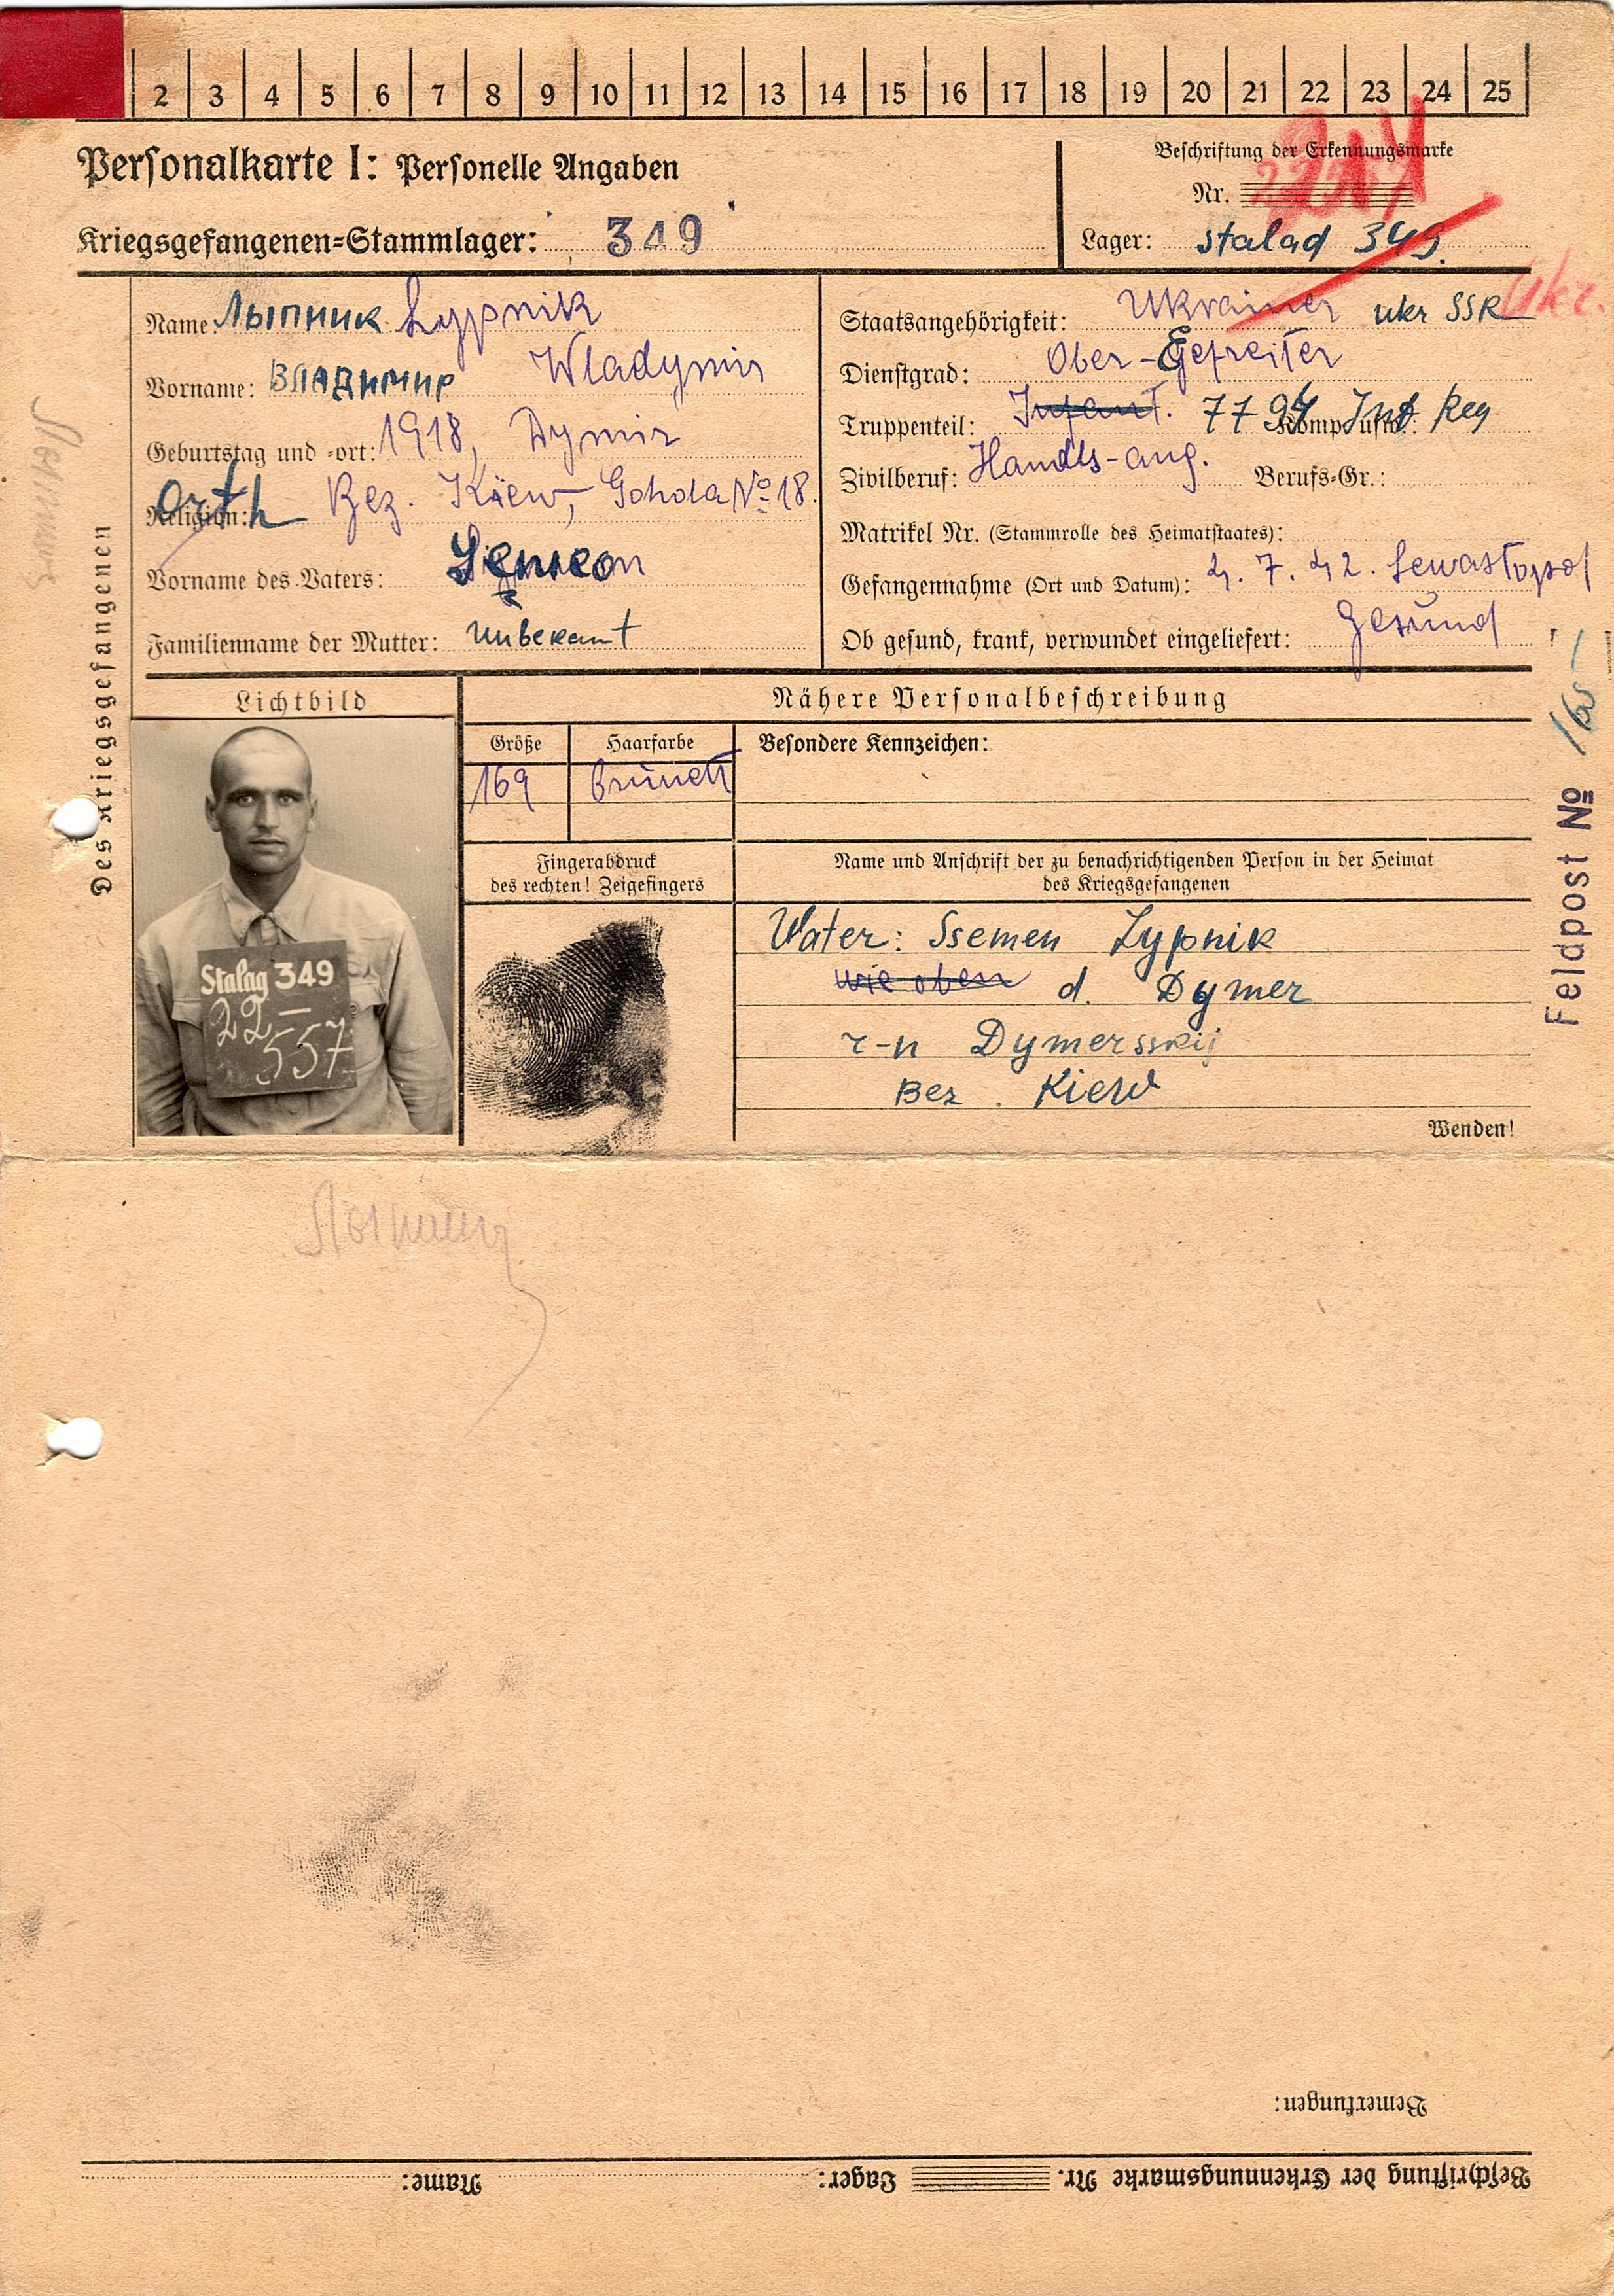 2 3 4 5 6 7 8 9 10 11 12 13 14 15 16 17 18 19 20 21 22 23 24 25
Personalkarte I: Personelle Angaben
Kriegsgefangenen-Stammlager: 349
Beschriftung der Erkennungsmarke
Nr.
Lager: stalad 349.
Des Kriegsgefangenen
Name: Лыпник Lypnik
Vorname: Владимир Wladymir
Geburtstag und -ort: 1918, Dymir
Religion: Orth Bez. Kiew, No 18.
Vorname des Vaters: Semeon
Familienname der Mutter: unbekannt
Staatsangehörigkeit: Ukrainer ukr SSR Ukr.
Dienstgrad: Ober-Gefreiter
Truppenteil: Infant. 77 94 Komp. usw.: Inf Reg
Zivilberuf: Handls-ang. Berufs-Gr.:
Matrikel Nr. (Stammrolle des Heimatstaates):
Gefangennahme (Ort und Datum): 4. 7. 42. Sewastopol
Ob gesund, krank, verwundet eingeliefert: Gesund
Lichtbild
Stalag 349
22-
557
Nähere Personalbeschreibung
Größe Haarfarbe Besondere Kennzeichen:
169 Brünett
Fingerabdruck
des rechten! Zeigefingers
Name und Anschrift der zu benachrichtigenden Person in der Heimat
des Kriegsgefangenen
Vater: Ssemen Lypnik
wie oben d. Dymer
r-n Dymersskij
Bez. Kiew
Wenden!
Feldpost №
Bemerkungen:
Beschriftung der Erkennungsmarke Nr. Lager: Name: